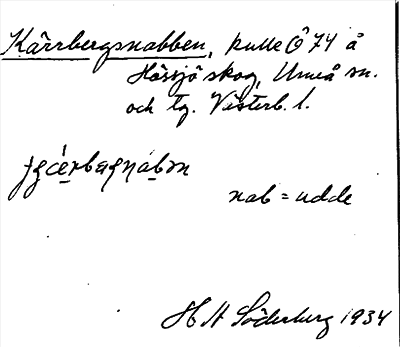 Kärrbergsnabben, kulle Ö 74 å
Hössjö skog, Umeå sn.
och tg. Västerb. l.
nab = udde
H A Söderberg 1934